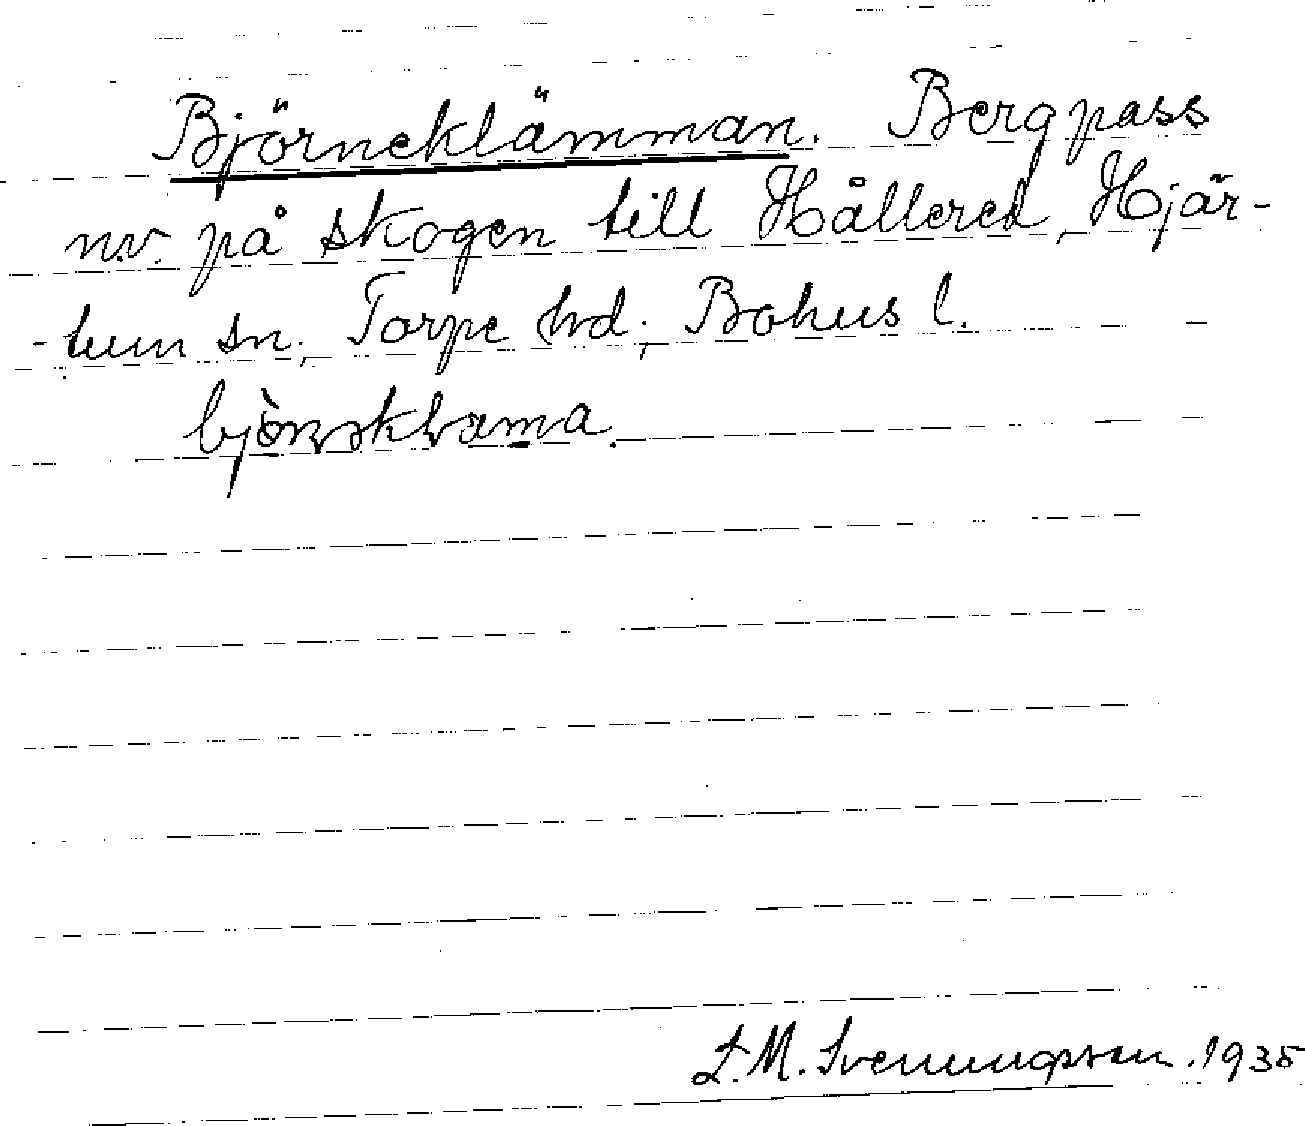 Björneklämman. Bergpass
n.v. på skogen till Hållered, Hjär-
-tum sn, Torpe hd; Bohus l.
L.M. Svenungsson. 1935